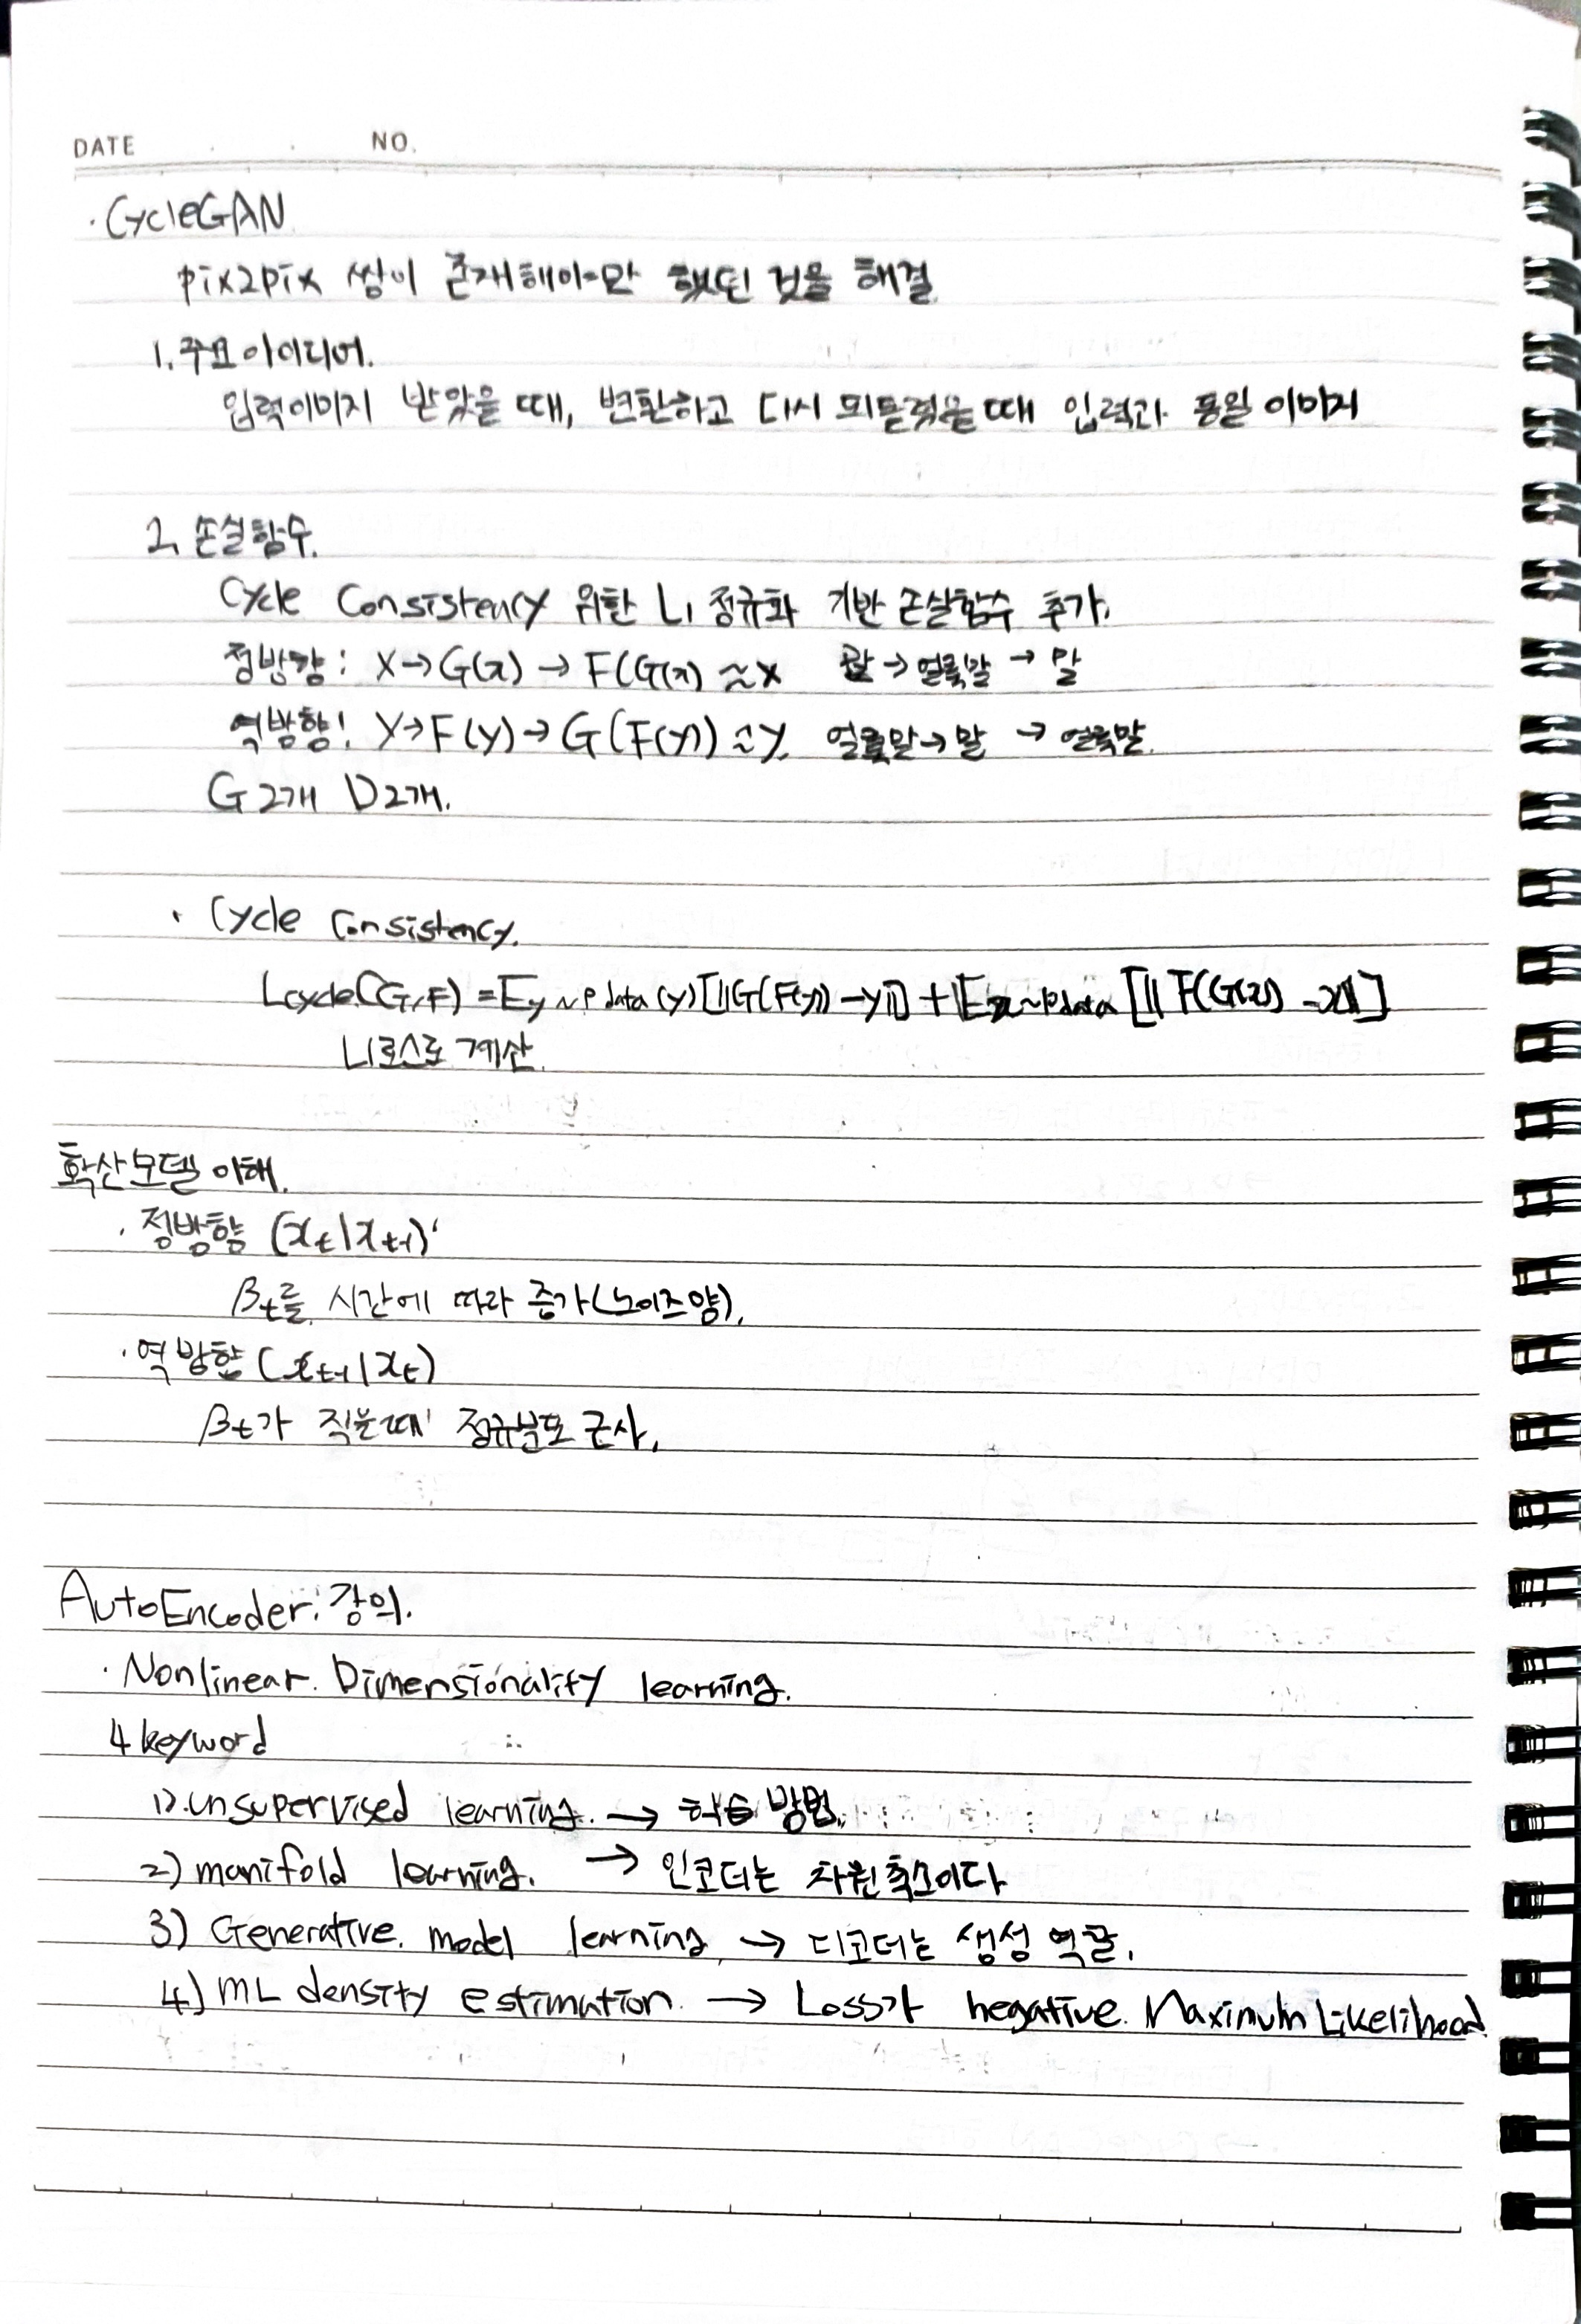 DATE . . NO.
· CycleGAN
pix2pix 쌍이 존재해야만 했던 것을 해결
1. 주요 아이디어.
입력이미지 받았을 때, 변환하고 다시 되돌렸을 때 입력과 동일 이미지
2. 손실함수.
Cycle Consistency 위한 L1 정규화 기반 손실함수 추가.
정방향: X→G(x) → F(G(x) ≈x 말→얼룩말 → 말
역방향: Y→F(y)→G(F(y)) ≈y. 얼룩말→말 → 얼룩말.
G 2개 D 2개.
· Cycle Consistency.
Lcycle(G,F) = Ey~Pdata(y)[||G(F(y)) -y||] + Ex~Pdata [|| F(G(x)) -x||]
L1로스로 계산.
확산모델 이해.
· 정방향 (xt|xt-1)
βt를 시간에 따라 증가(노이즈양).
· 역방향 (xt-1|xt)
βt가 작을때 정규분포 근사.
AutoEncoder: 강의.
· Nonlinear. Dimensionality learning.
4 keyword
1). unsupervised learning. → 학습 방법.
2) manifold learning. → 인코더는 차원축소이다
3) Generative. model learning → 디코더는 생성 역할.
4) ML density estimation. → Loss가 negative. Maximum Likelihood.